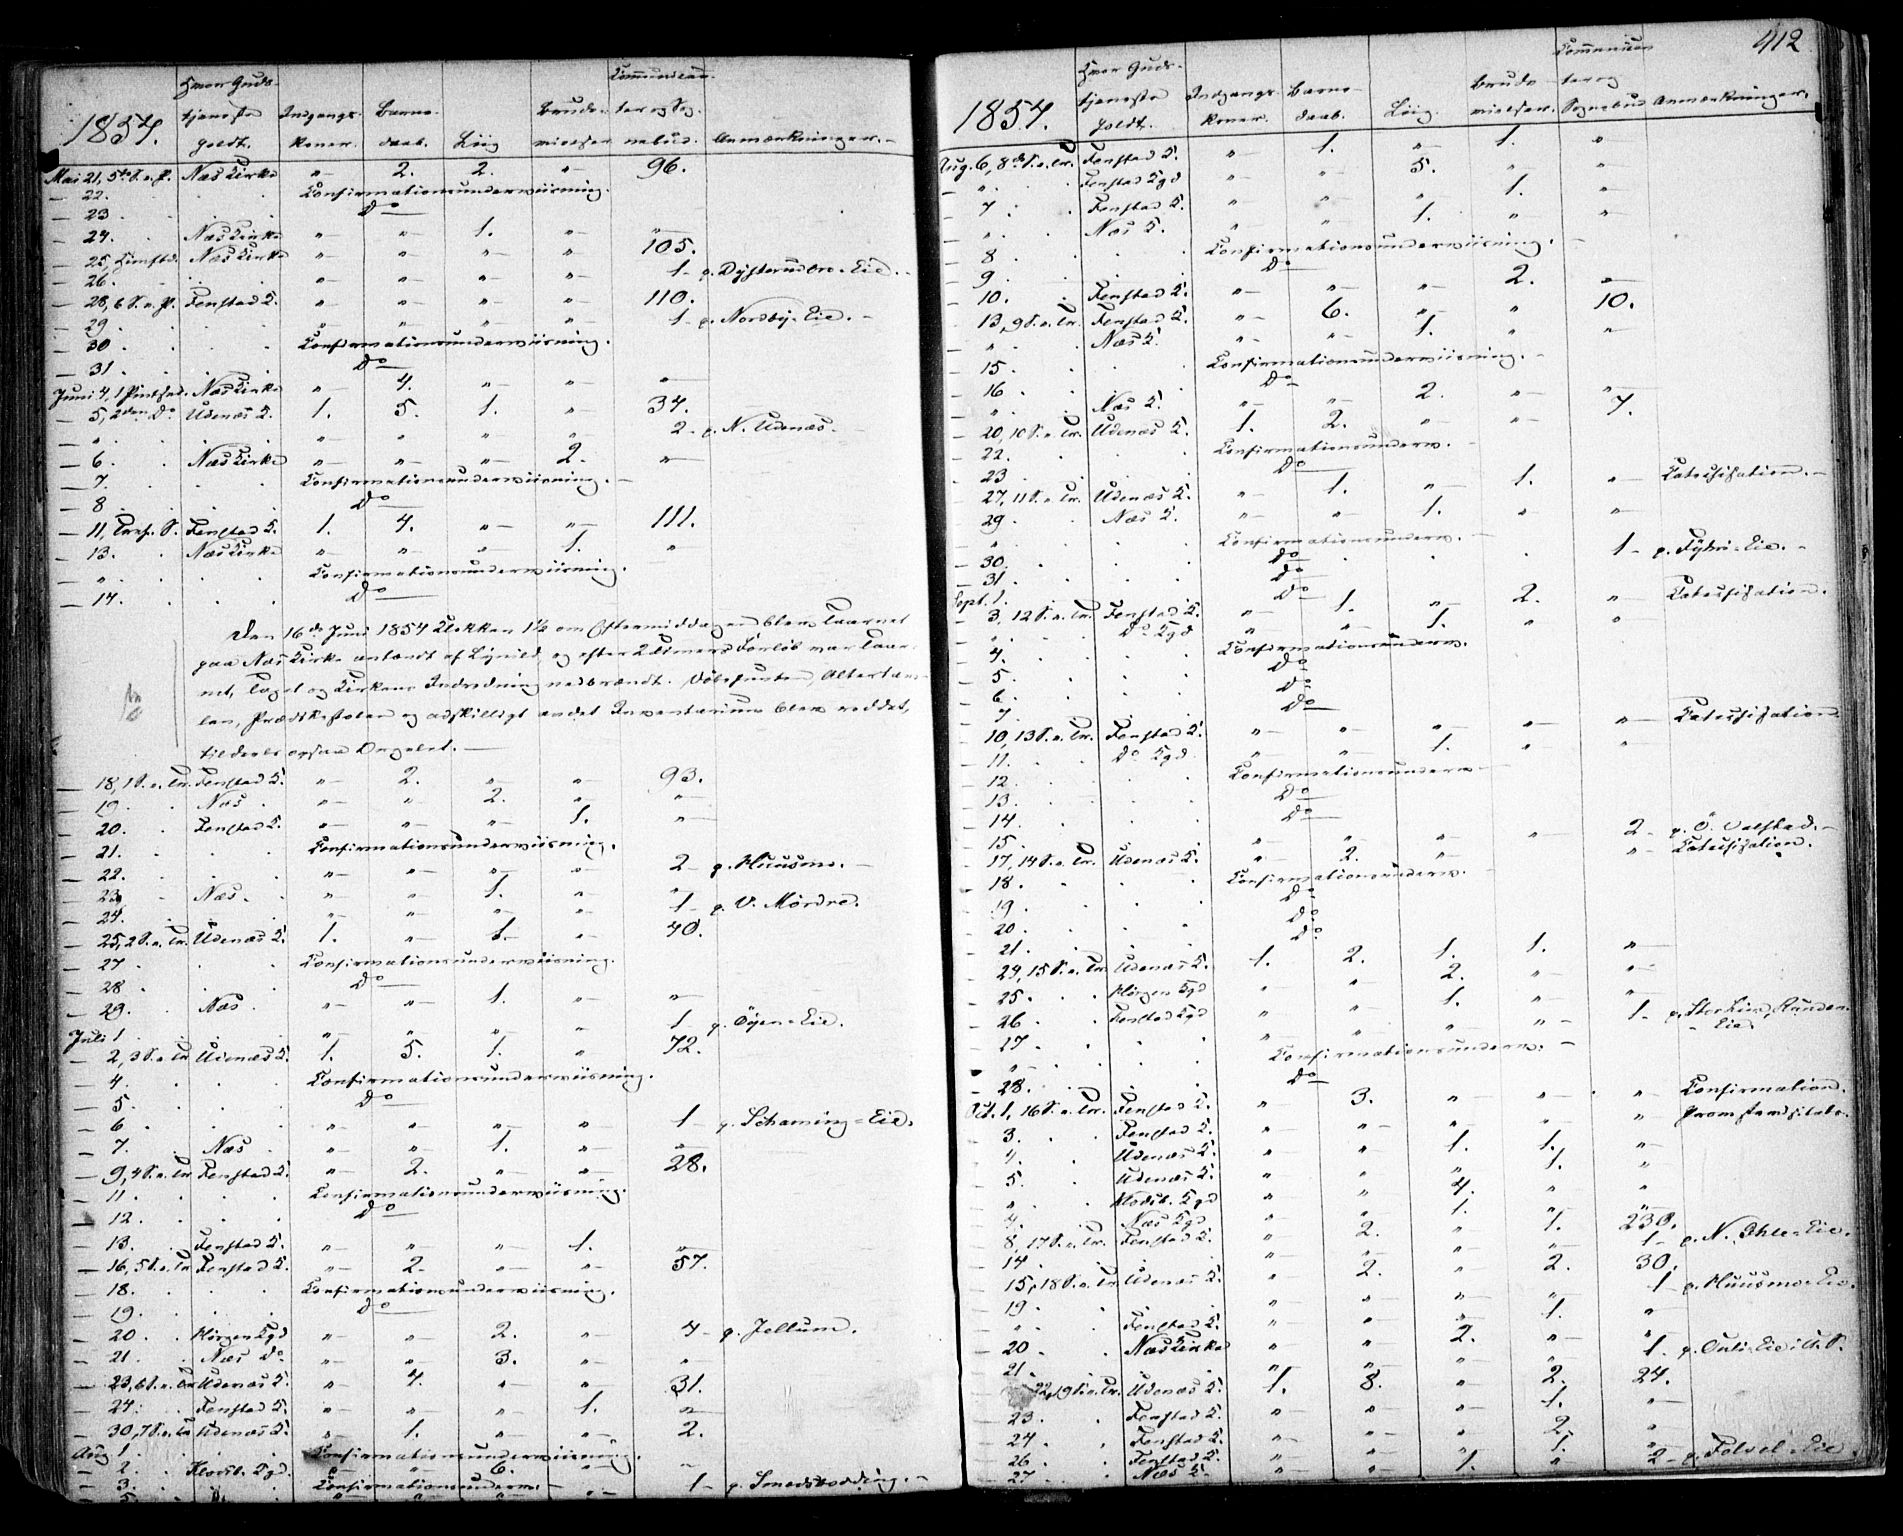 1854. Hvor Guds- tjeneste holdt. Indgangs- koner. Barne- daab. Liig Brude- vielser Communican- ter og Sog- nebud. Anmærkninger.
Mai 21, 5te S. e. P. Næs Kirke „ 2. 2. „ 96.
— 22. Confirmationsunderviisning.
— 23 Do
— 24. Næs Kirke „ „ 1. „ „
— 25, Himftd. Næs Kirke „ „ „ „ 105.
— 26. „ „ „ „ 1 p. Dysterudbro-Eie.
— 28, 6 S. e. P. Fenstad K. „ „ „ „ 110.
— 29. „ „ „ „ 1 p. Nordby-Eie.
— 30 Confirmationsunderviisning.
— 31. Do
Juni 4, 1 Pintsed. Næs Kirke „ 4. „ „ „
— 5, 2den Do Udenæs K. 1. 5. 1. „ 34.
— „ „ „ „ „ 2 p. N. Udenæs.
— 6. Næs Kirke „ „ „ 2. „
— 7. Confirmationsunderviisning.
— 8. Do
— 11, Tref. S. Fenstad K. 1. 4. „ „ 111.
— 13. Næs Kirke „ „ „ 1. „
— „ Confirmationsunderviisning.
— 14. Do
Den 16de Juni 1854 Klokken 1½ om Eftermiddagen blev Taarnet
paa Næs Kirke antændt af Lynild, og efter 2 Timers Forløb var Taar-
net, Taget og Kirkens Indredning nedbrændt. Døbefunten, Altertav-
len, Prædikestolen og adskilligt andet Inventarium blev reddet,
tildeels ogsaa Orgelet.
— 18, 1 S. e. Tr. Fenstad K. „ 2. „ „ 93.
— 19. Næs „ „ 2. „ „
— 20. Fenstad K. „ „ „ 1. „
— 21. Confirmationsunderviisning.
— 22. „ „ „ „ 2 p. Huusmo.
— 23. Næs. „ „ 1. „ „
— 24. „ „ „ „ 1 p. V. Mørdre.
— 25, 2 S. e. Tr. Udenæs K. 1. „ 1. „ 40.
— 27 Confirmationsunderviisning.
— 28 Do
— 29. Næs. „ „ 1. „ „
Juli 1 „ „ „ „ 1 p. Öyen-Eie.
— 2, 3 S. e. Tr. Udenæs K. 1. 5. 1. „ 72.
— 4. Confirmationsunderviisning.
— 5. Do
— 6 „ „ „ „ 1 p. Schaming-Eie.
— 7. Næs „ „ 1. „ „
— 9, 4 S. e. Tr. Fenstad K. „ 2. „ „ 28.
— 11. Confirmationsunderviisning.
— 12. Do
— 13. Fenstad K. „ „ „ 1. „
— 16, 5 S. e. Tr. Fenstad K. „ 2. „ „ 57.
— 18. Confirmationsunderviisning.
— 19. Do
— 20 Hörgen Kgd „ „ 2. „ 4 p. Jellum.
— 21. Næs Do „ „ 3. „ „
— 23, 6 S. e. Tr. Udenæs K. „ 4. „ „ 31.
— 24. Fenstad K. „ „ „ 1. „
— 30, 7 S. e. Tr. Udenæs K. „ 1. „ „ 2.
Aug 1. Confirmationsunderviisning.
— 2. Hodsb. Kgd. „ „ 6. „ „
— 3. Confirmationsunderv. 1 p. Smedskodding.
412
1854. Hvor Guds- tjeneste holdt. Indgangs- koner. Barne- daab. Liig. Brude- vielser. Communican- ter og Sognebud Anmærkninger.
Aug. 6, 8de S. e. Tr. Fenstad K. „ 1. „ 1. „
— „ Fenstad Kgd „ „ 5. „ „
— 7 Fenstad K. „ „ „ 1. „
— „ Næs K. „ „ 1. „ „
— 8 Confirmationsunderviisning.
— 9. Do
— 10. Fenstad K. „ „ „ 2. „
— 13, 9 S. e. Tr. Fenstad K. „ 6. „ „ 10.
— „ Næs K. „ „ 1. „ „
— 15. Confirmationsunderviisning.
— 16 Do
— „ Næs K. „ „ 2. „ „
— 20, 10 S. e. Tr. Udenæs K. 1. 2. „ „ 7.
— 22. Confirmationsunderv.
— 23 Do
— 27, 11 S. e. Tr. Udenæs K. „ 1. „ 1. „ Catechisation.
— 29. Næs K. „ „ 1. „ „
— „ Confirmationsunderv.
— 30. Do 1 p. Fyhri-Eie.
— 31. Do
Sept. 1. Do
— 3, 12 S. e. Tr. Fenstad K. „ 1. „ 2. „ Catechisation.
— „ Do Kgd „ „ 1. „ „
— 4. Confirmationsunderv.
— 5. Do
— 6. Do
— 7. Do
— 10, 13 S. e. Tr. Fenstad K. „ „ „ „ „ Catechisation.
— 11. Do Kgd „ „ 1. „ „
— 12. Confirmationsunderv.
— 13. Do
— 14. Do
— 15. „ „ „ „ 2 p. Ö. Valstad.
— 17, 14 S. e. Tr. Udenæs K. „ 2. „ „ Catechisation.
— 18. Confirmationsunderv.
— 19. Do
— 20. Do
— 21. Do
— 24, 15 S. e. Tr. Udenæs K. 1. 2. 1. 1. „
— 25. Hörgen Kgd „ „ 2. „ „
— 26 Fenstad Kgd „ „ 1. „ „
— 27 „ „ „ „ 1 p. Eie
— „ Confirmationsunderv.
— 28. Do
Oct. 1, 16 S. e. Tr. Fenstad K. „ 3. „ „ „ Confirmation.
— 3. Fenstad K. „ „ „ „ „
— 4. Udenæs K. „ „ 1. 1. „
— 5. Udenæs K. „ „ „ 1. „
— „ Hodsb. Kgd „ „ 4. „ „
— 7. Næs Kgd „ „ 1. „ „
— 8, 17 S. e. Tr. Fenstad K. „ 2. „ 1. 230.
— 14. „ „ „ „ 1 p. N. Ihle-Eie.
— 15, 18 S. e. Tr. Udenæs K. „ 2. „ 2. 30.
— 19. „ „ „ „ 1 p. Huusmo-Eie.
— „ Fenstad K. „ „ „ 1. „
— 20 Næs Kirke „ „ 2. „ „
— 21. „ „ „ „ 1. p.
22, 19 S. e. Tr. Udenæs K. 1. 8. „ 2. 24.
— 23. Fenstad K. „ „ „ 1. „
— 24 Fenstad K. „ „ „ 2. „
— 26 Fenstad K. „ „ „ 1. „
— 27 Næs K. „ „ 1. „ 2 p. Folvel-Eie.